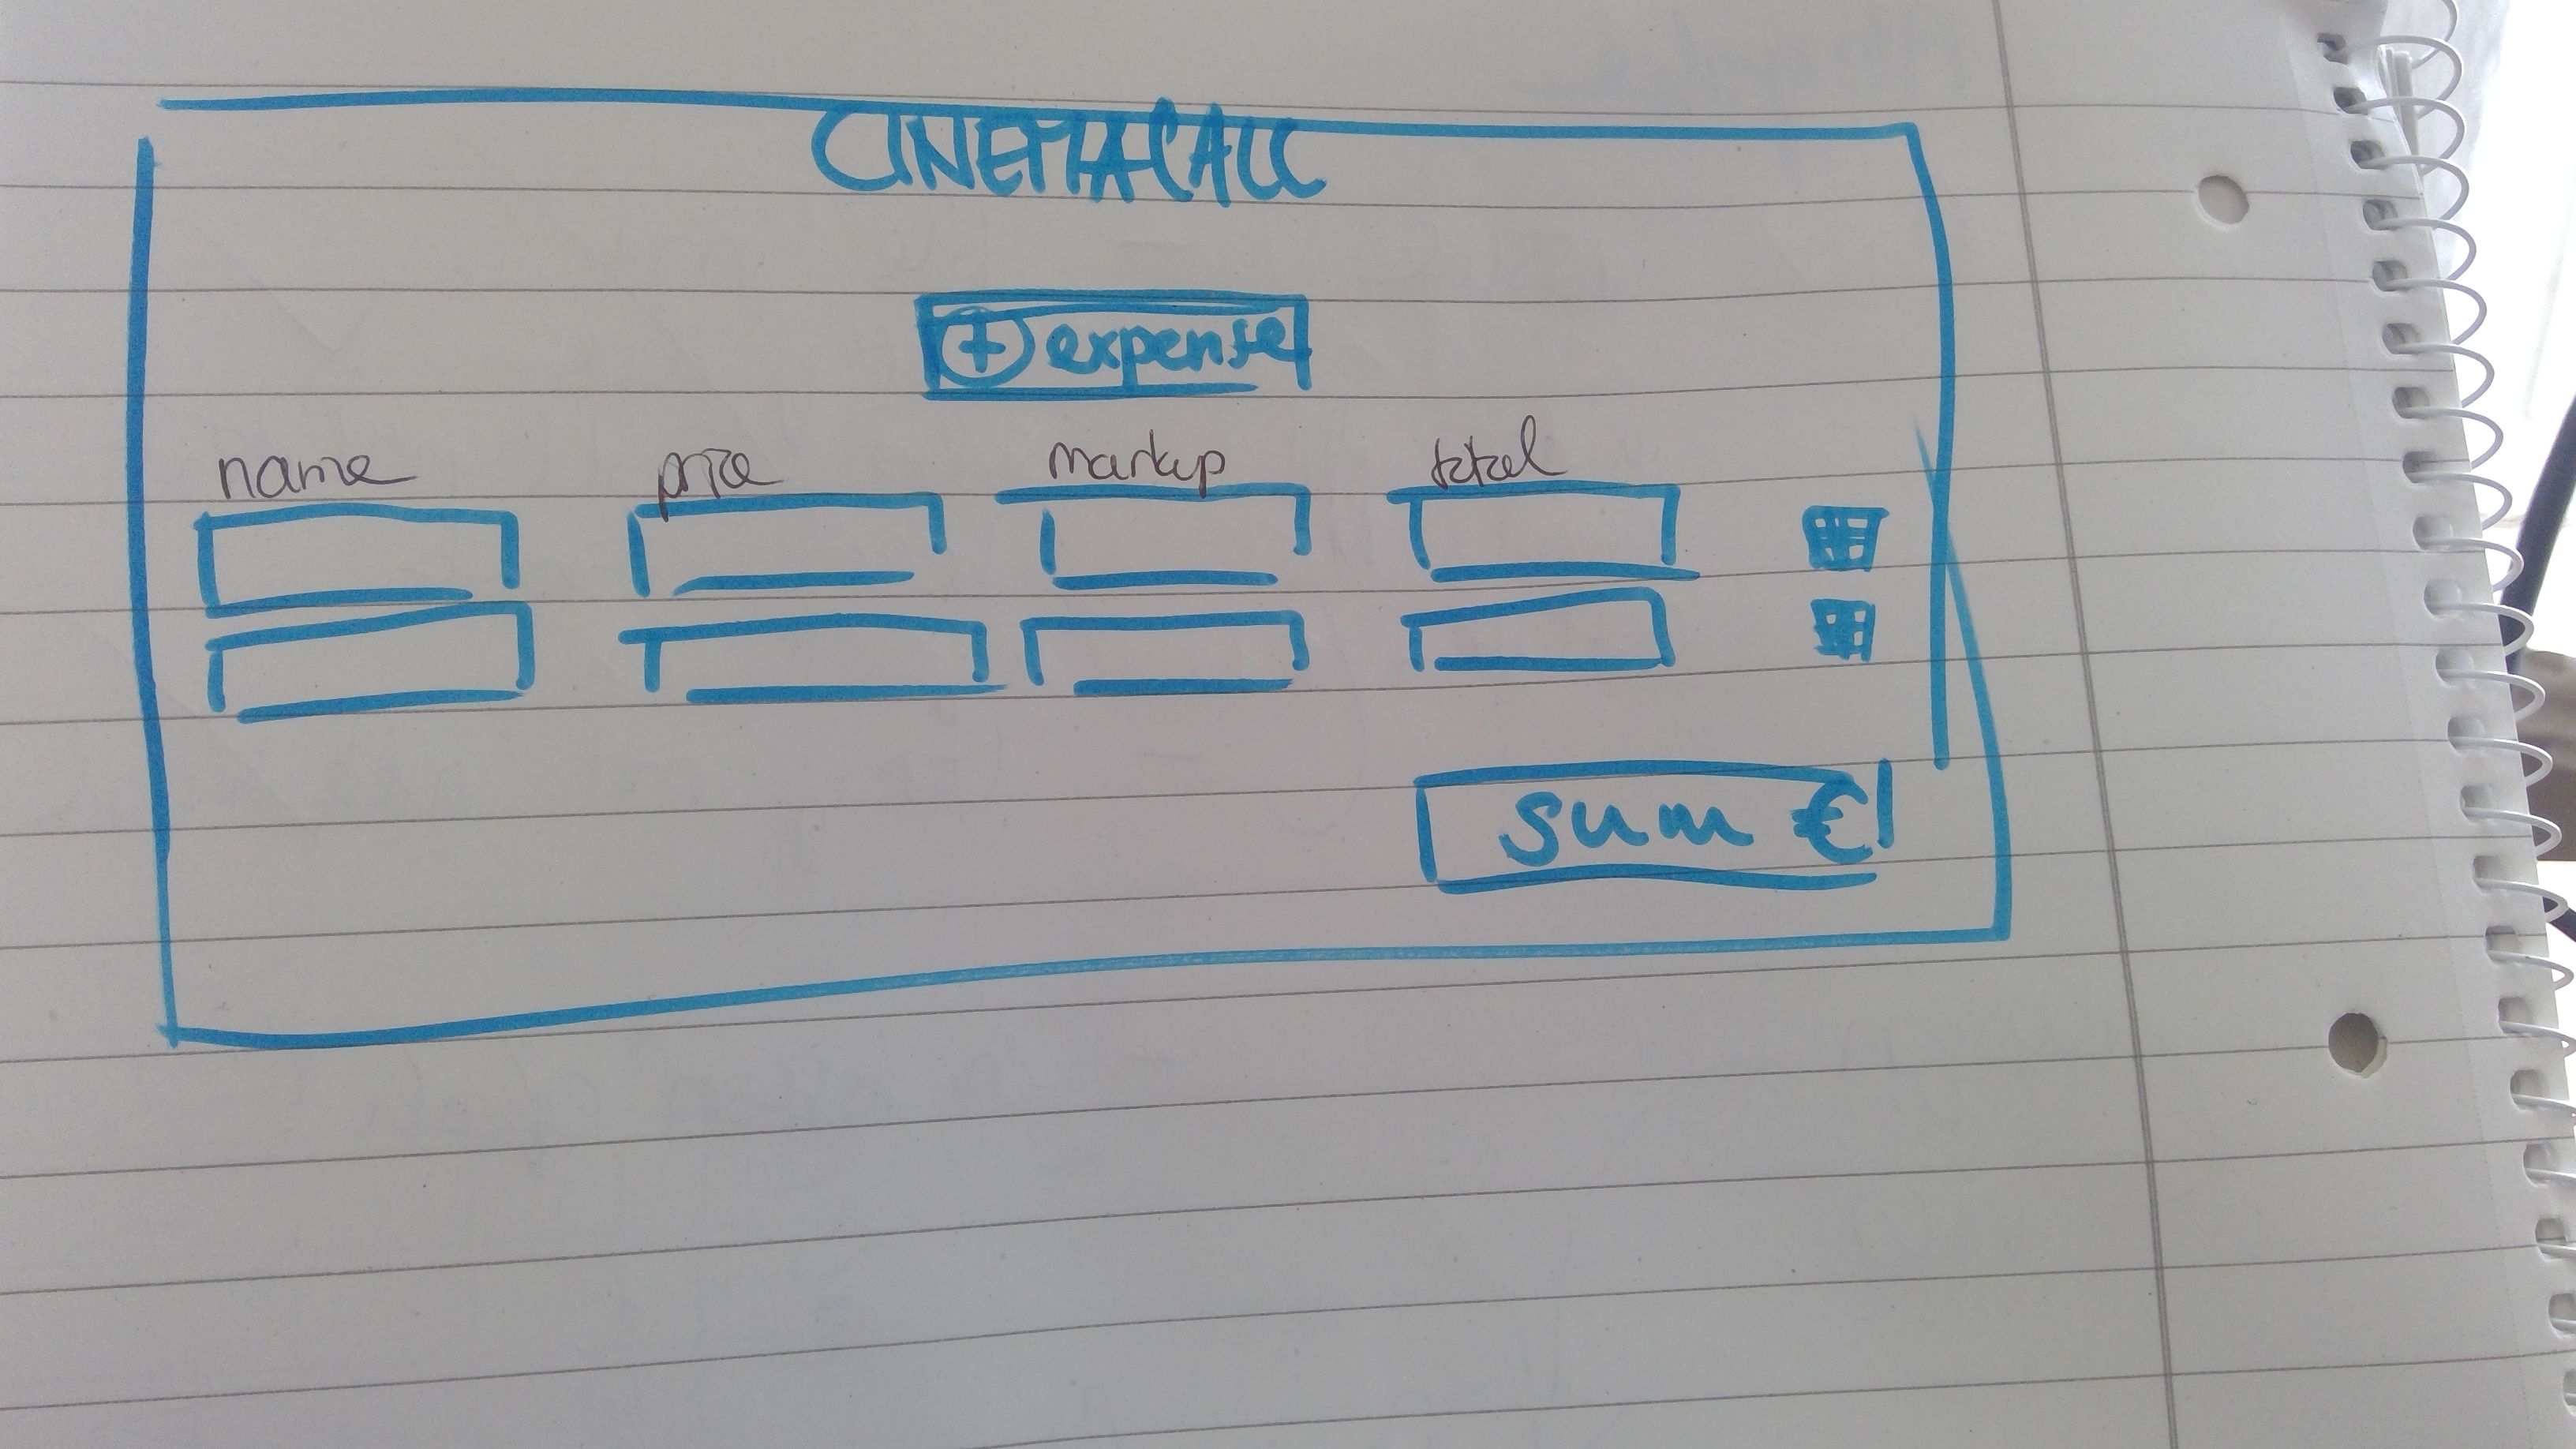 CINEMACALC
+ expense
name price markup total
sum €